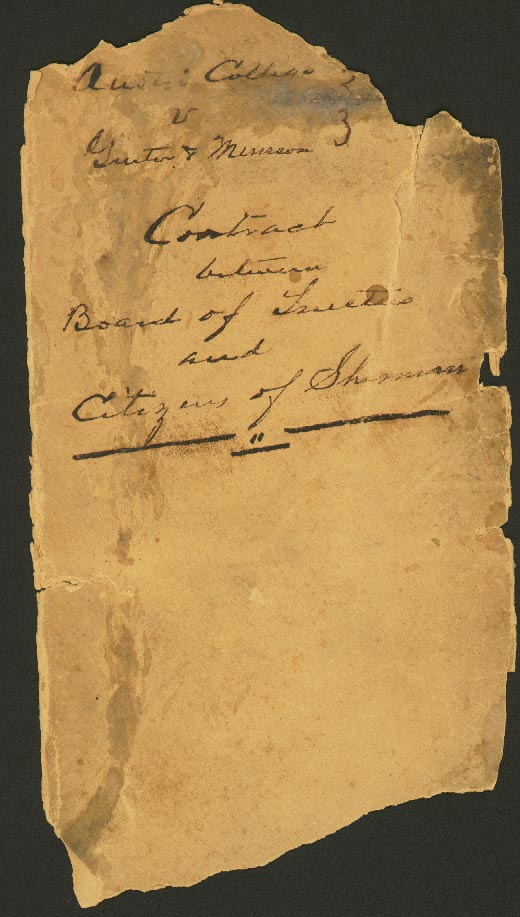 Austin College }
v
& 
Contract
between
Board of Trustees
and
Citizens of Sherman
"